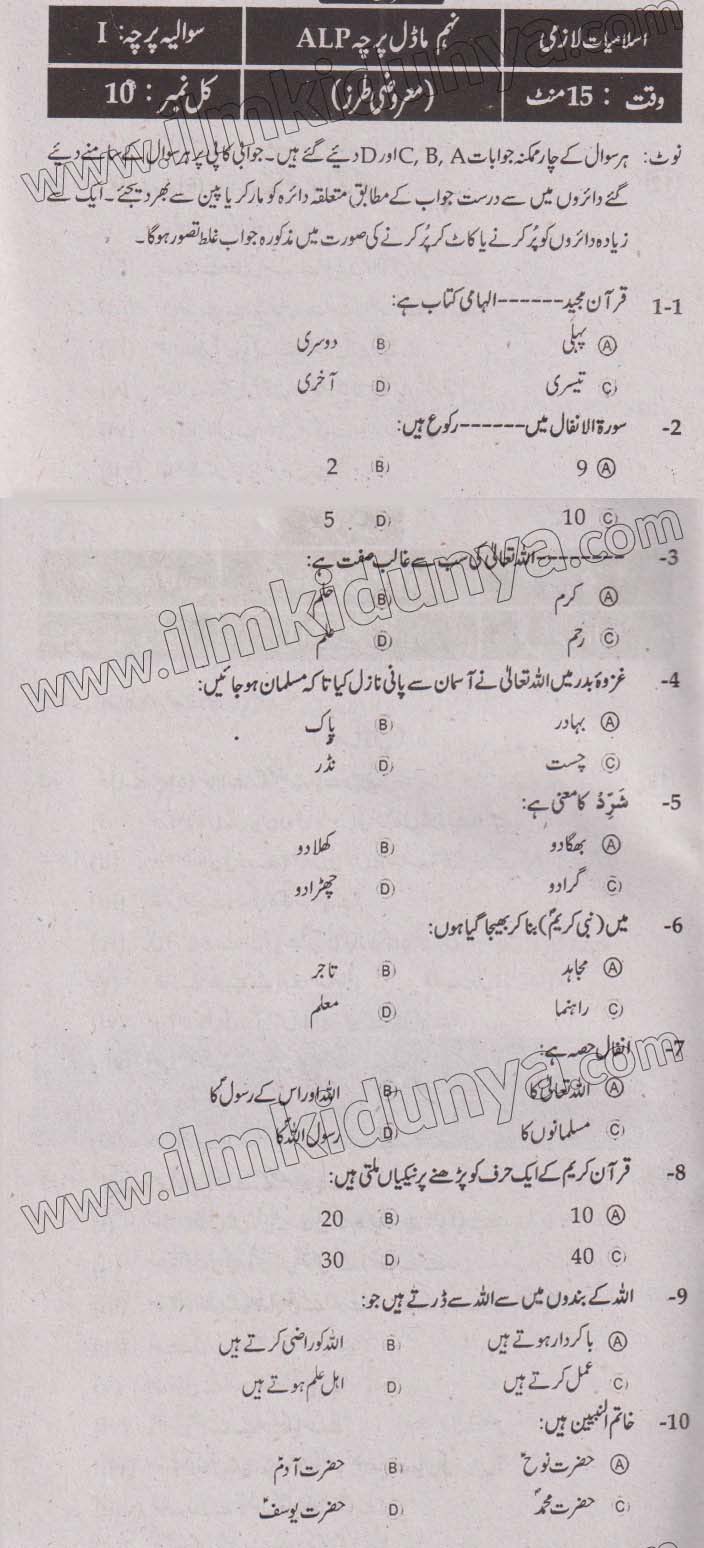 اسلامیات لازمی نہم ماڈل پرچہ ALP سوالیہ پرچہ: I
وقت : 15 منٹ (معروضی طرز) کل نمبر : 10
نوٹ: ہر سوال کے چار ممکنہ جوابات C, B, A اور D دیئے گئے ہیں۔ جوابی کاپی پر ہر سوال کے سامنے دیئے
گئے دائروں میں سے درست جواب کے مطابق متعلقہ دائرہ کو مارکر یا پین سے بھر دیجئے۔ ایک سے
زیادہ دائروں کو پُر کرنے یا کاٹ کر پُر کرنے کی صورت میں مذکورہ جواب غلط تصور ہوگا۔
1-1 قرآن مجید ------ الہامی کتاب ہے:
A پہلی B دوسری
C تیسری D آخری
2- سورۃ الانفال میں ------ رکوع ہیں:
A 9 B 2
C 10 D 5
3- ------ اللہ تعالیٰ کی سب سے غالب صفت ہے:
A کرم B حلم
C رحم D علم
4- غزوۂ بدر میں اللہ تعالیٰ نے آسمان سے پانی نازل کیا تاکہ مسلمان ہو جائیں:
A بہادر B پاک
C چست D نڈر
5- شَرِّدْ کا معنی ہے:
A بھگا دو B کھلا دو
C گرا دو D چھڑا دو
6- میں (نبی کریمؐ) بنا کر بھیجا گیا ہوں:
A مجاہد B تاجر
C راہنما D معلم
7- انفال حصہ ہے:
A اللہ تعالیٰ کا B اللہ اور اس کے رسولؐ کا
C مسلمانوں کا D رسول اللہؐ کا
8- قرآن کریم کے ایک حرف کو پڑھنے پر نیکیاں ملتی ہیں:
A 10 B 20
C 40 D 30
9- اللہ کے بندوں میں سے اللہ سے ڈرتے ہیں جو:
A باکردار ہوتے ہیں B اللہ کو راضی کرتے ہیں
C عمل کرتے ہیں D اہل علم ہوتے ہیں
10- خاتم النبیین ہیں:
A حضرت نوحؑ B حضرت آدمؑ
C حضرت محمدؐ D حضرت یوسفؑ
www.ilmkidunya.com
www.ilmkidunya.com
www.ilmkidunya.com